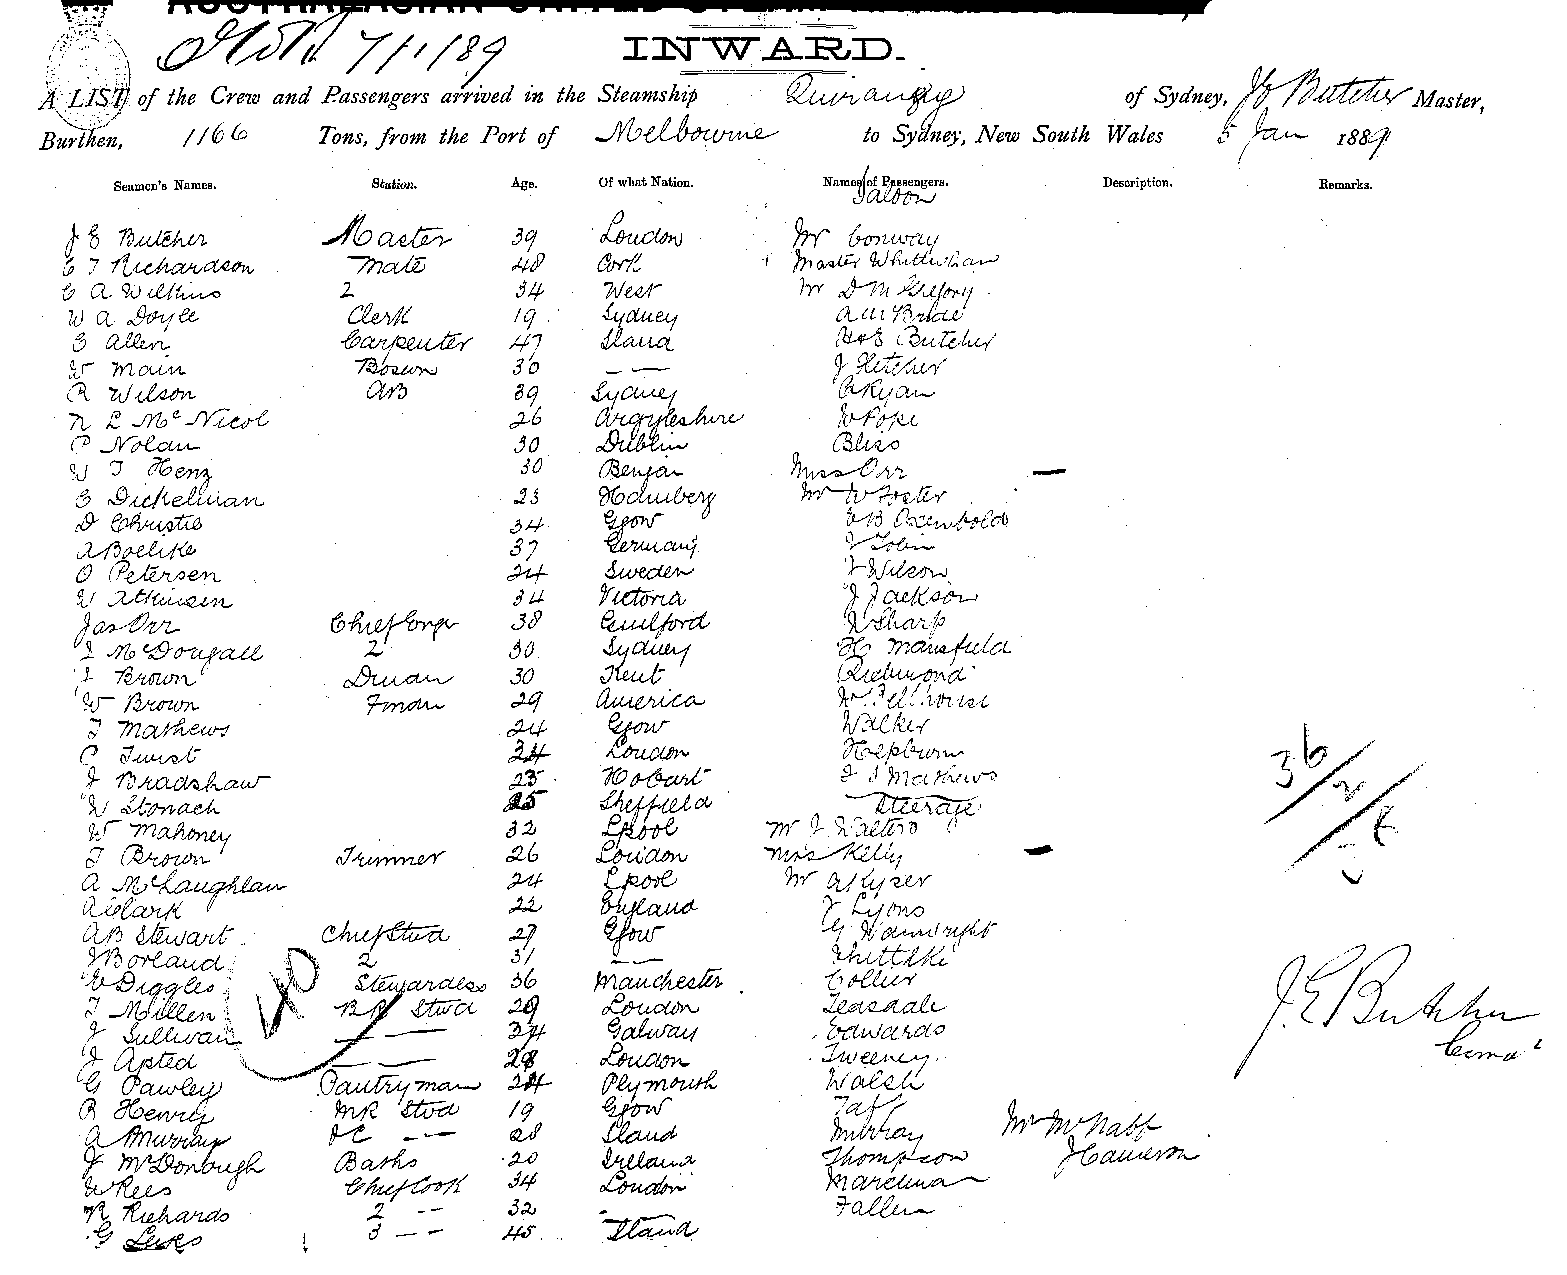 7/1/89
INWARD.
A LIST of the Crew and Passengers arrived in the Steamship of Sydney, J E Butcher Master,
Burthen, 1166 Tons, from the Port of Melbourne to Sydney, New South Wales 5 Jan 1889
Seamen's Names. Station. Age. Of what Nation. Names of Passengers. Description. Remarks.
Saloon
J E Butcher Master 39 London Mr Conway
Richardson Mate 48 Cork Master
A Wilkins 2 34 West Mr D McGregory
W A Doyle Clerk 19 Sydney A McBride
Allen Carpenter 47 Sland Butcher
W Main Bosun 30 — — J Fletcher
R Wilson AB 39 Sydney Ryan
N L McNicol 26 Argyleshire W Pope
P Nolan 30 Dublin Bliss
W T Henz 30 Miss Orr —
Dickelman 23 Hamberg Mr W Foster
D Christie 34 Ggow
A Boelike 37 Germany J Tobin
O Petersen 24 Sweden J Wilson
W Atkinsen 34 Victoria J Jackson
Jas Orr Chief Engr 38 Guilford Sharp
McDougall 2 30 Sydney H Mansfield
Brown 30 Kent Richmond
W Brown Fmn 29 America
T Mathews 24 Ggow Walker
C Twist 34 London Hepburn
J Bradshaw 23 Hobart Mathews
W Stonach 25 Sheffield Steerage
W Mahoney 32 Lpool Mr J Walters
T Brown Trimmer 26 London Mrs Kelly —
A McLaughlan 24 Lpool Mr A Kyser
A Clark 22 England J Lyons
A B Stewart Chief Stwd 27 Ggow G Wainwright
J Borland 2 31 — —
Diggles Stewardess 36 Manchester Collier
T Millen Stwd 29 London Teasdale
J Sullivan — — 34 Galway Edwards
J Apted — — 28 London Tweeney
G Pawley Pantryman 24 Plymouth Walsh
R Henry Stwd 19 Ggow Taff
A Murray — 28 Sland Murray Mr McNabb
J McDonough Baths 20 Ireland Thompson J Cameron
W Rees Chief Cook 34 London
R Richards 2 — 32 Fallen
G 3 — — 45 Sland
40
36/2/
J. E. Butcher